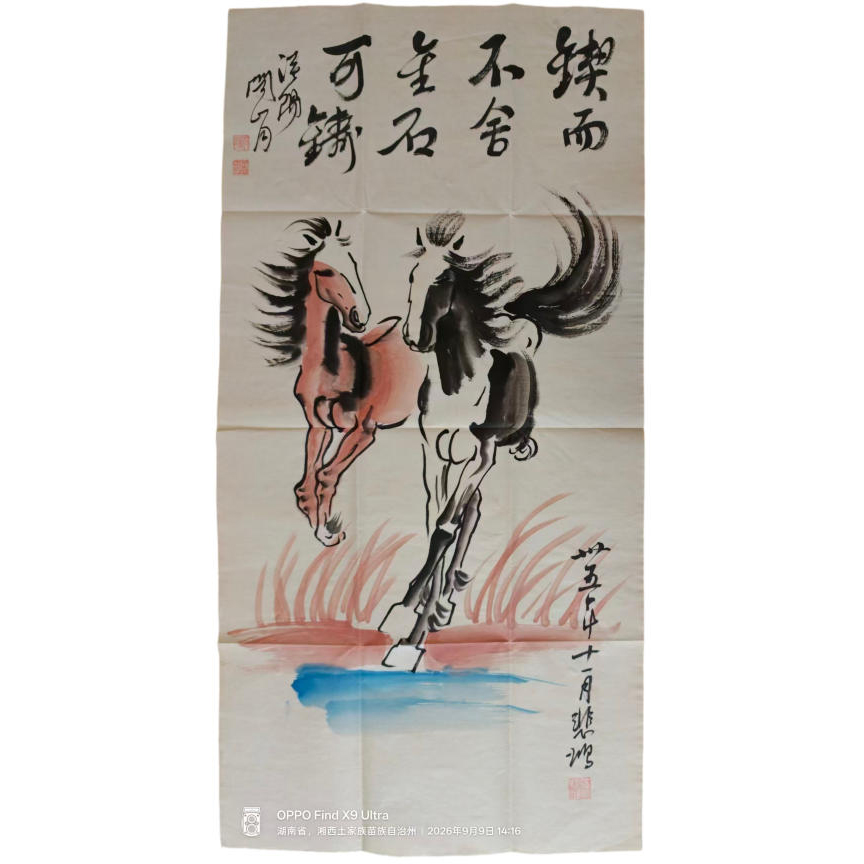 鍥而
不舍
金石
可鑄
山月
卅五年十一月悲鴻
OPPO Find X9 Ultra
湖南省，湘西土家族苗族自治州｜2026年9月9日 14:16